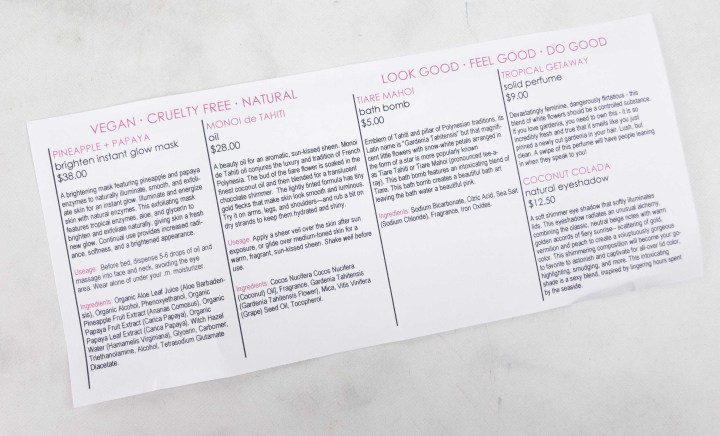 VEGAN · CRUELTY FREE · NATURAL
LOOK GOOD · FEEL GOOD · DO GOOD
PINEAPPLE + PAPAYA
brighten instant glow mask
$38.00
A brightening mask featuring pineapple and papaya
enzymes to naturally illuminate, smooth, and exfoli-
ate skin for an instant glow. Illuminate and energize
skin with natural enzymes. This exfoliating mask
features tropical enzymes, aloe, and glycerin to
brighten and exfoliate naturally, giving skin a fresh
new glow. Continual use provides increased radi-
ance, softness, and a brightened appearance.
Useage: Before bed, dispense 5-6 drops of oil and
massage into face and neck, avoiding the eye
area. Wear alone of under your .m. moisturizer.
Ingredients: Organic Aloe Leaf Juice (Aloe Barbaden-
sis), Organic Alcohol, Phenoxyethanol, Organic
Pineapple Fruit Extract (Ananas Comosus), Organic
Papaya Fruit Extract (Carica Papaya), Organic
Papaya Leaf Extract (Carica Papaya), Witch Hazel
Water (Hamamelis Virginiana), Glycerin, Carbomer,
Triethanolamine, Alcohol, Tetrasodium Glutamate
Diacetate.
MONOI de TAHITI
oil
$28.00
A beauty oil for an aromatic, sun-kissed sheen. Monoi
de Tahiti conjures the luxury and tradition of French
Polynesia. The bud of the tiare flower is soaked in the
finest coconut oil and then blended for a translucent
chocolate slimmer. The lightly tinted formula has tiny
gold flecks that make skin look smooth and luminous.
Try it on arms, legs, and shoulders—and rub a bit on
dry strands to keep them hydrated and shiny.
Useage: Apply a sheer veil over the skin after sun
exposure, or glide over medium-toned skin for a
warm, fragrant, sun-kissed sheen. Shake well before
use.
Ingredients: Cocos Nucifera Cocos Nucifera
(Coconut) Oil], Fragrance, Gardenia Tahitensis
(Gardenia Tahitensis Flower), Mica, Vitis Vinifera
(Grape) Seed Oil, Tocopherol.
TIARE MAHOI
bath bomb
$5.00
Emblem of Tahiti and pillar of Polynesian traditions, its
Latin name is "Gardenia Tahitensis" but that magnifi-
cent little flowers with snow-white petals arranged in
the form of a star is more popularly known
as Tiare Tahiti or Tiare Mahoi (pronounced tee-a-
ray). This bath bomb features an intoxicating blend of
Tiare. This bath bomb creates a beautiful bath art
leaving the bath water a beautiful pink.
Ingredients: Sodium Bicarbonate, Citric Acid, Sea Salt
(Sodium Chloride), Fragrance, Iron Oxides.
TROPICAL GETAWAY
solid perfume
$9.00
Devastatingly feminine, dangerously flirtatious - this
blend of white flowers should be a controlled substance.
If you love gardenias, you need to own this - it is so
incredibly fresh and true that it smells like you just
pinned a newly cut gardenia in your hair. Lush, but
clean. A swipe of this perfume will have people leaning
in when they speak to you!
COCONUT COLADA
natural eyeshadow
$12.50
A soft shimmer eye shadow that softly illuminates
lids. This eyeshadow radiates an unusual alchemy,
combining the classic, neutral beige notes with warm
golden accords of fiery sunrise– scattering of gold,
vermilion and peach to create a voluptuously gorgeous
color. This shimmering composition will become your go-
to favorite to astonish and captivate for all-over lid color,
highlighting, smudging, and more. This intoxicating
shade is a sexy blend, inspired by lingering hours spent
by the seaside.